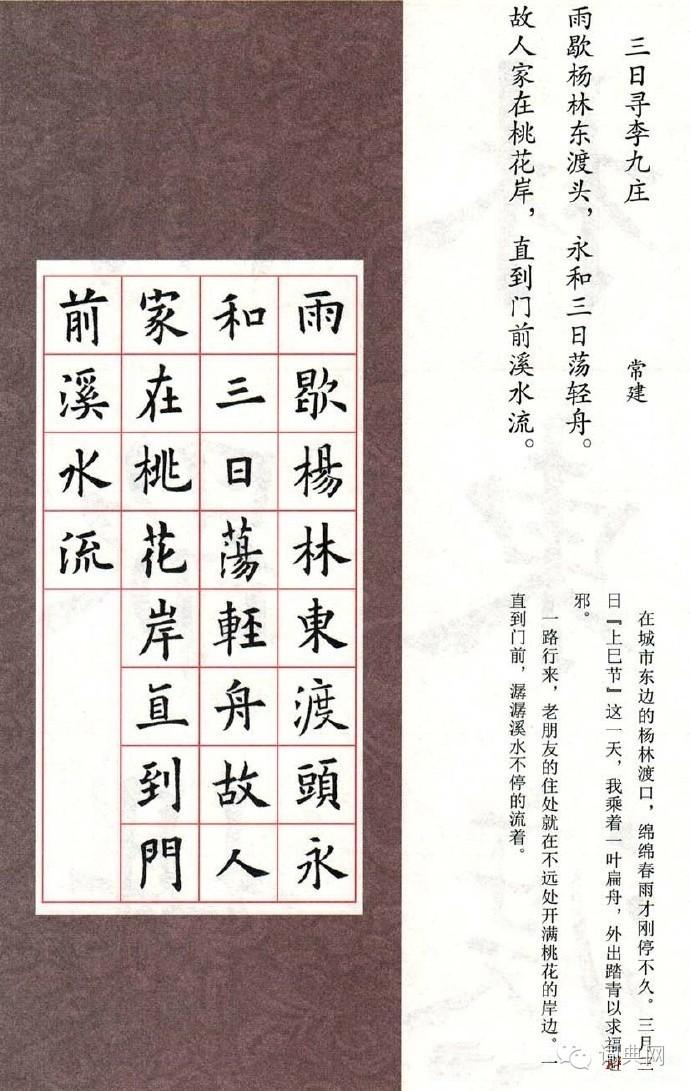 三日寻李九庄 常建
雨歇杨林东渡头，永和三日荡轻舟。
故人家在桃花岸，直到门前溪水流。
在城市东边的杨林渡口，绵绵春雨才刚停不久。三月三
日『上巳节』这一天，我乘着一叶扁舟，外出踏青以求福避
邪。
一路行来，老朋友的住处就在不远处开满桃花的岸边。一
直到门前，潺潺溪水不停的流着。
雨歇楊林東渡頭永
和三日蕩輕舟故人
家在桃花岸直到門
前溪水流
词典网